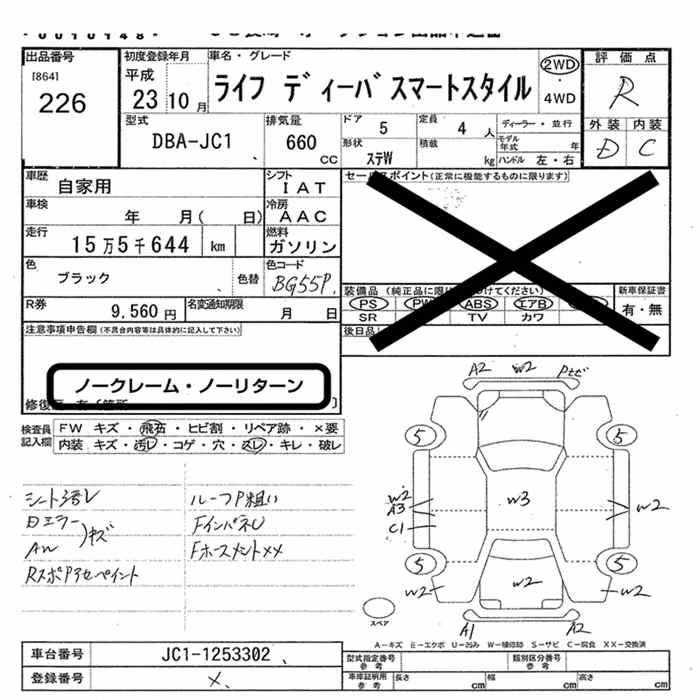 出品番号
[864]
226
初度登録年月
平成
23 10 月
車名・グレード
ライフ ディーバスマートスタイル
2WD
・
4WD
評価点
R
外装 内装
D C
型式
DBA-JC1
排気量
660
CC
ドア
5
定員
4 人
形状
ステW
積載
kg
ディーラー・並行
モデル年式 年
ハンドル 左・右
車歴
自家用
シフト
IAT
車検
年 月( 日)
冷房
AAC
走行
15万5千644 km
燃料
ガソリン
色
ブラック
色替
色コード
BG55P
R券
9,560 円
名変通知期限
月 日
セールスポイント(正常に機能するものに限ります)
装備品
PS PW ABS エアB
SR TV カワ
新車保証書
有・無
後日品
注意事項申告欄(不具合内容等は具体的に記入して下さい)
ノークレーム・ノーリターン
検査員
記入欄
FW キズ・飛石・ヒビ割・リペア跡・×要
内装 キズ・汚レ・コゲ・穴・スレ・キレ・破レ
シート汚レ
日エラー
AW
キズ
Rスポアセペイント
ルーフP粗い
FインパネU
Fホースメント××
A2 W2 Pセビ
5 5
W2
A3
C1
W3
W2
5 5
W2 W2 W2
A1 A2
スペア
A-キズ E-エクボ U-凹み W-補修跡 S-サビ C-腐食 XX-交換済
車台番号
JC1-1253302
登録番号
×
型式指定番号
参考
類別区分番号
参考
車庫証明用
参考
長さ cm
幅 cm
高さ cm